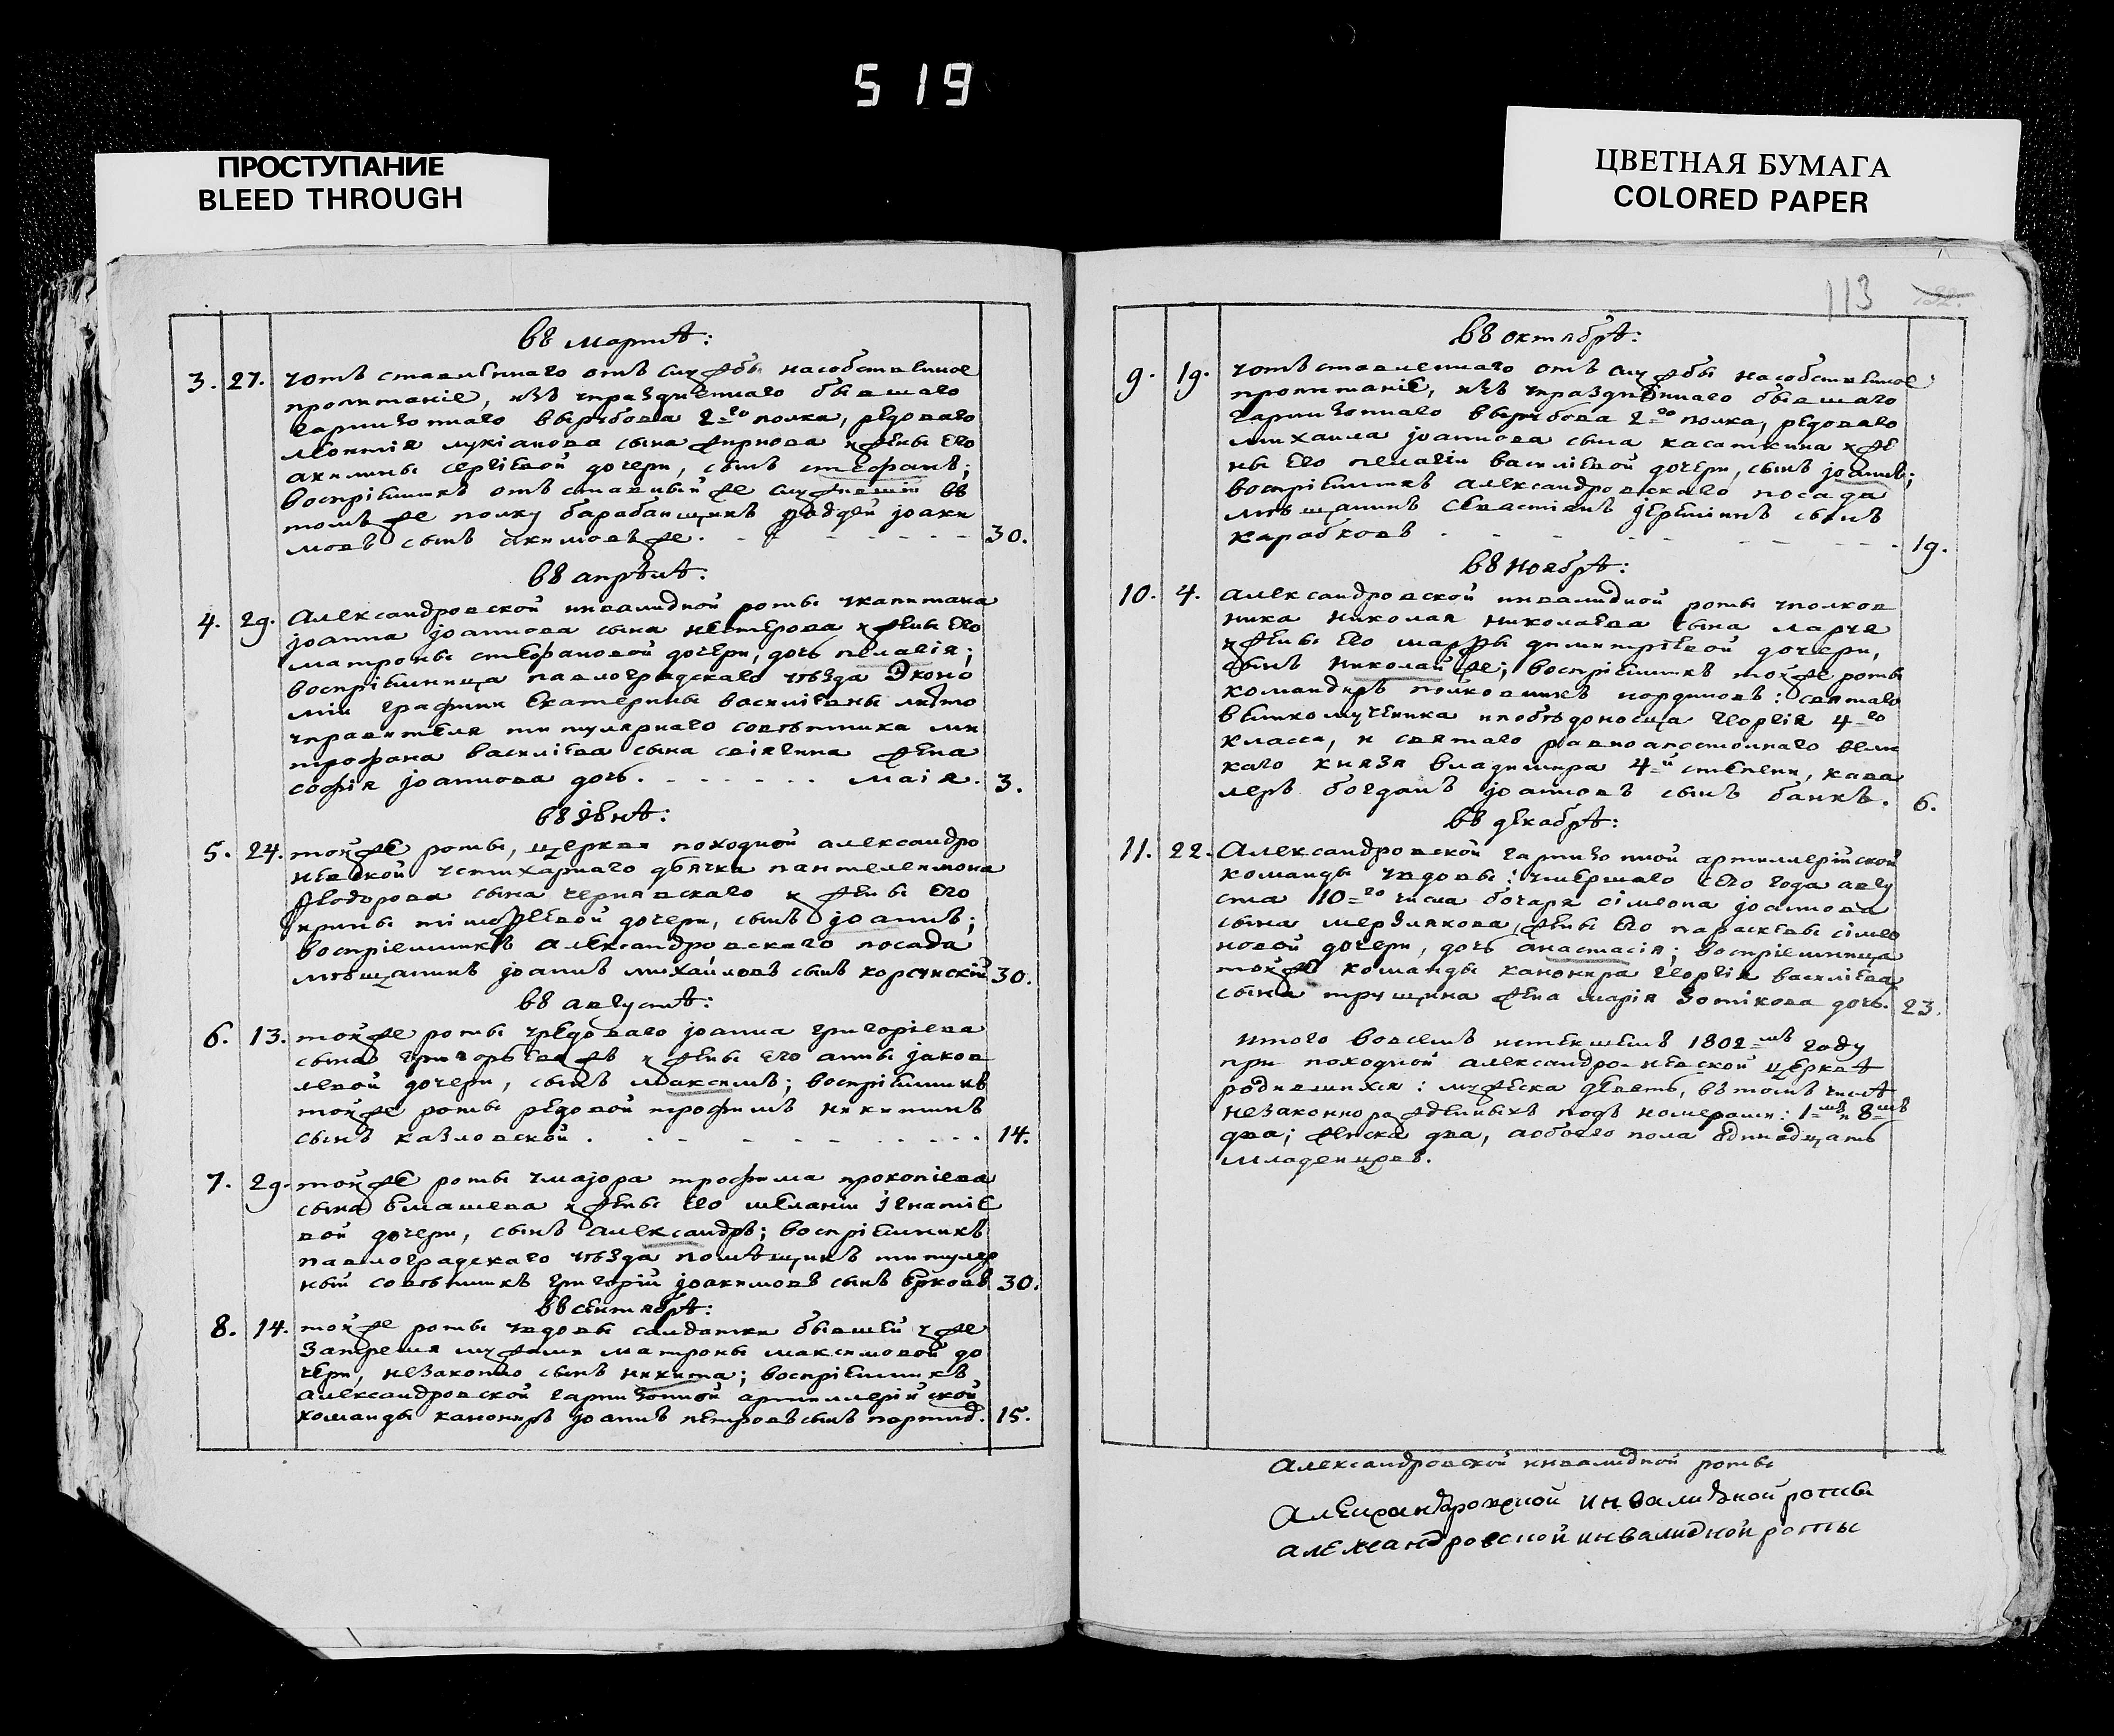 519
ПРОСТУПАНИЕ
BLEED THROUGH
ЦВЕТНАЯ БУМАГА
COLORED PAPER
113
въ мартѣ:
3. 27. уотъставленнаго отъ службы насобственное
пропитаніе, изъ упраздненнаго бывшаго
гарнизоннаго вырубова 2го полка, редоваго
леонтія лукіанова сына и жены его
акилины сергіевой дочери, сынъ стефанъ;
воспріемникъ отъставный же служившій въ
томъ же полку барабанщикъ фаддей јоаки
мовъ сынъ акимовъ же. 30.
въ апрѣлѣ:
4. 29. Александровской инвалидной роты укапитана
јоанна јоаннова сына нестерова и жены его
матроны стефановой дочери, дочь пелагія;
воспріемница павлоградскаго уѣзда Эконо
міи графини Екатерины василіевны литто
управителя титулярнаго совѣтника ми
трофана василіева сына свіягина жена
софія јоаннова дочь. маія. 3.
въ јюнѣ:
5. 24. тойже роты, церкви походной александро
невской устихарнаго дьячка пантелеимона
Ѳеодорова сына чернявскаго и жены его
ирины тімоѳеевой дочери, сынъ јоаннъ;
воспріемникъ Александровскаго посада
мѣщанинъ јоаннъ михайловъ сынъ корсунскій 30.
въ августѣ:
6. 13. тойже роты уредоваго јоанна григоріева
сына григорьева жъ и жены его анны јаков
левой дочери, сынъ максимъ; воспріемникъ
тойже роты редовой трофимъ никитинъ
сынъ казловской. 14.
7. 29. тойже роты умаjора трофима прокопіева
сына Емашева и жены его меланіи игнатіе
вой дочери, сынъ александръ; воспріемникъ
павлоградскаго уѣзда помѣщикъ титуляр
ный совѣтникъ григорій јоакимовъ сынъ Ерковъ 30.
въ сентябрѣ:
8. 14. тойже роты увдовы салдатки бывшей уже
затремя мужями матроны максимовой до
чери, незаконно сынъ никита; воспріемникъ
александровской гарнизонной артиллерійской
команды канониръ јоаннъ петровъ сынъ 15.
въ октябрѣ:
9. 19. уотъставленнаго отъ службы насобственное
пропитаніе, изъ упраздненнаго бывшаго
гарнизоннаго вырубова 2го полка, редоваго
михаила јоаннова сына касаткина и же
ны его пелагіи василіевой дочери, сынъ јоаннъ;
воспріемникъ александровскаго посада
мѣщанинъ севастіанъ јереміинъ сынъ
карабковъ. 19.
въ ноябрѣ:
10. 4. Александровской инвалидной роты уполков
ника николая николаева сына ларчя
и жены его марѳы димитріевой дочери,
сынъ николай же; воспріемникъ тойже роты
командиръ полковникъ иорденовъ: святаго
великомученика ипобѣдоносца георгія 4го
класса, и святаго равноапостолнаго вели
каго князя владимира 4й степени, кава
леръ богданъ јоанновъ сынъ банкъ. 6.
въ декабрѣ:
11. 22. Александровской гарнизонной артиллерійской
команды увдовы: умершаго сего года авгу
ста 10го числа бочаря сімеона јоаннова
сына мерзлякова, жены его параскевы сімео
новой дочери, дочь анастасія; воспріемница
тойже команды канонира георгія василіева
сына трущина жена марія Зотікова дочь. 23.
итого вовсемъ истекшемъ 1802мъ году
при походной александро-невской церквѣ
родившихся: мужеска девять, вътомъ числѣ
незаконнорожденныхъ подъ номерами: 1мъ и 8мъ
два; женска два, аобоего пола одиннадцать
младенцовъ.
Александровской инвалидной роты
Александровской инвалидной роты
александровской инвалидной роты